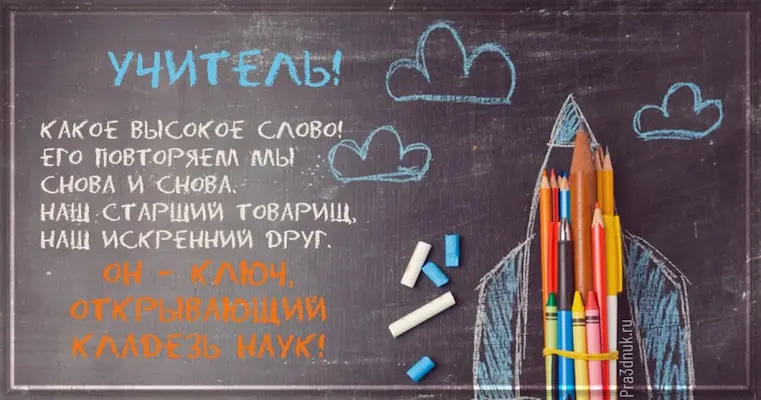 УЧИТЕЛЬ!
КАКОЕ ВЫСОКОЕ СЛОВО!
ЕГО ПОВТОРЯЕМ МЫ
СНОВА И СНОВА.
НАШ СТАРШИЙ ТОВАРИЩ,
НАШ ИСКРЕННИЙ ДРУГ.
ОН - КЛЮЧ,
ОТКРЫВАЮЩИЙ
КЛАДЕЗЬ НАУК!
Pra3dnuk.ru